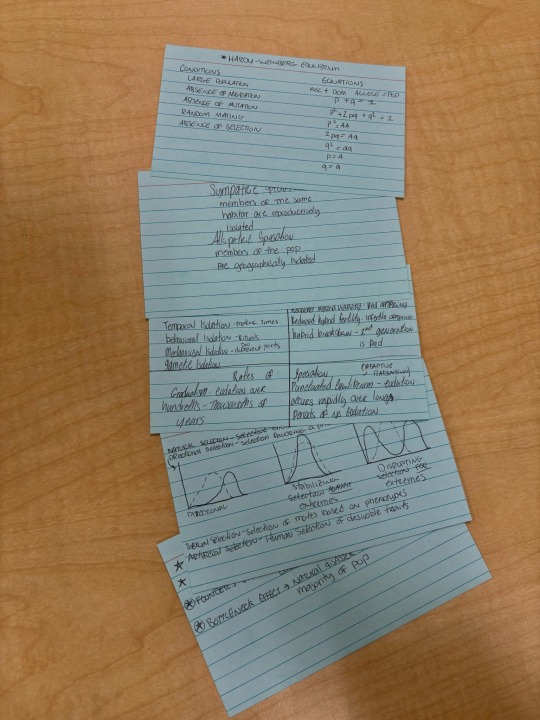 * HARDY-WEINBERG EQUILIBRIUM
CONDITIONS
LARGE POPULATION
ABSENCE OF MIGRATION
ABSENCE OF MUTATION
RANDOM MATING
ABSENCE OF SELECTION
EQUATIONS
REC + DOM ALLELE = POP
p + q = 1
p² + 2pq + q² = 1
p² = AA
2pq = Aq
q² = aa
p = A
q = a
Sympatric
members of the same
habitat are reproductively
isolated
Allopatric Speciation
members of the pop
are geographically isolated
Temporal Isolation - mating times
behavioral isolation - rituals
Mechanical Isolation - different parts
gametic Isolation
Reduced hybrid fertility - infertile offspring
Hybrid breakdown - 2nd generation
is bad
Rates of
Gradualism - evolution over
hundreths - thousands of
years
Speciation (ADAPTIVE RADIATION)
Punctuated Equilibrium - evolution
occurs rapidly over long
Periods of no Evolution
NATURAL SELECTION - SELECTIVE
DIRECTIONAL SELECTION - SELECTION FAVORING A
DIRECTIONAL
STABILIZING
SELECTION
EXTREMES
DISRUPTING
SELECTION FOR
EXTREMES
SEXUAL SELECTION - SELECTION OF MATES BASED ON PHENOTYPES
* ARTIFICIAL SELECTION - HUMAN SELECTION OF DESIRABLE TRAITS
*
* FOUNDERS
* BOTTLENECK EFFECT → NATURAL DISASTER
majority of pop